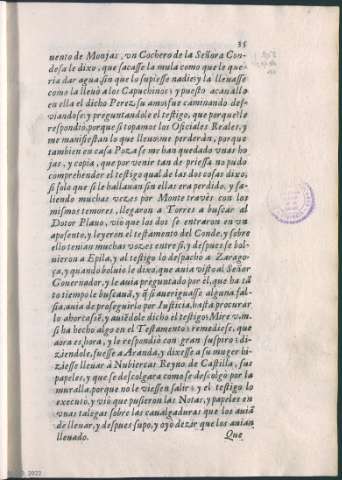 35
uento de Monjas, vn Cochero de la Señora Con-
desa le dixo, que sacasse la mula como que le que-
ria dar agua, sin que lo supiesse nadie; y la lleuasse
como la lleuò a los Capuchinos; y puesto acauallo
en ella el dicho Perez, su amo fue caminando des-
uiandose; y preguntandole el testigo, que porque? le
respondiò, porque si topamos los Oficiales Reales, y
me manifiestan lo que lleuo, me perderàn, porque
tambien en casa Poza se me han quedado vnas ho-
jas, y copia, que por venir tan de priessa no pudo
comprehender el testigo qual de las dos cosas dixo,
si solo que si le hallauan sin ellas era perdido, y sa-
liendo muchas vezes por Monte trauès con los
mismos temores, llegaron a Torres a buscar al
Dotor Plano, viò que los dos se entraron en vn
aposento, y leyeron el testamento del Conde, y sobre
ello tenian muchas vozes entre sì, y despues se bol-
uieron a Epila, y al testigo lo despacho a Zarago-
ça, y quando boluiò le dixo, que auia visto al Señor
Gouernador, y le auia preguntado por èl, que ha tã-
to tiempo le buscauã, y q̃ si aueriguasse alguna fal-
sia, auia de proseguirlo por Iusticia, hasta procurar
lo ahorcasẽ, y auiẽdole dicho el testigo: Mire v.m.
si ha hecho algo en el Testamento; remediese, que
aora es hora, y le respondiò con gran suspiro: di-
ziendole, fuesse a Aranda, y dixesse a su muger hi-
ziesse lleuar à Nubiercas Reyno de Castilla, sus
papeles, y que se descolgara como se descolgò por la
muralla, porque no le viessen salir; y el testigo lo
executò, y viò que pusieron las Notas, y papeles en
vnas talegas sobre las caualgaduras que los auiã
de lleuar, y despues supo, y oyò dezir que los auian
lleuado. Que
2022